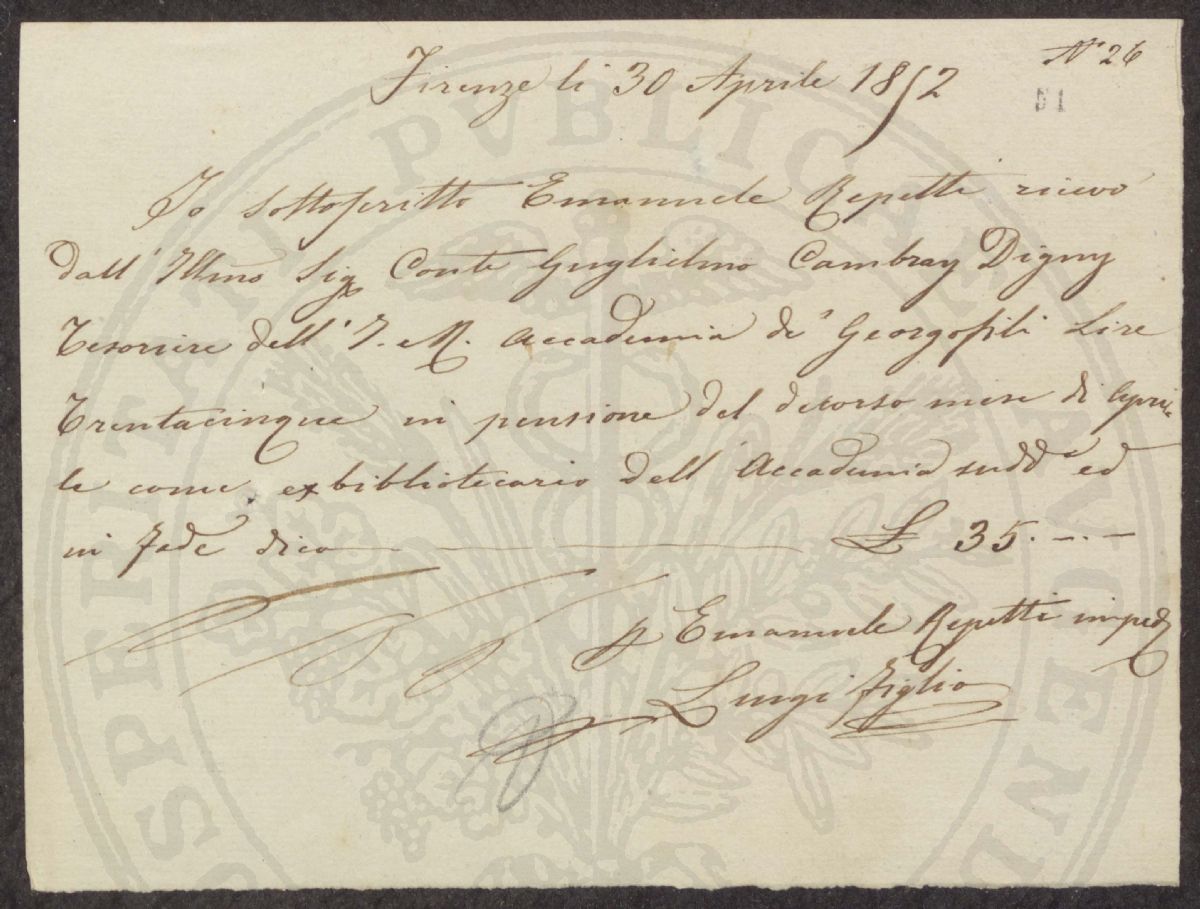 N° 26
51
Firenze li 30 Aprile 1852
Io sottoscritto Emanuele Repetti ricevo
dall' Illmo Sig Conte Guglielmo Cambray Digny
Tesoriere dell' I. e R. Accademia de' Georgofili Lire
Trentacinque in pensione del decorso mese di Apri-
le come exbibliotecario dell' Accademia sudda ed
in fede dico £ 35.-.-
p Emanuele Repetti imped
Luigi figlio
PROSPERITATI PVBLICAE AVGENDAE